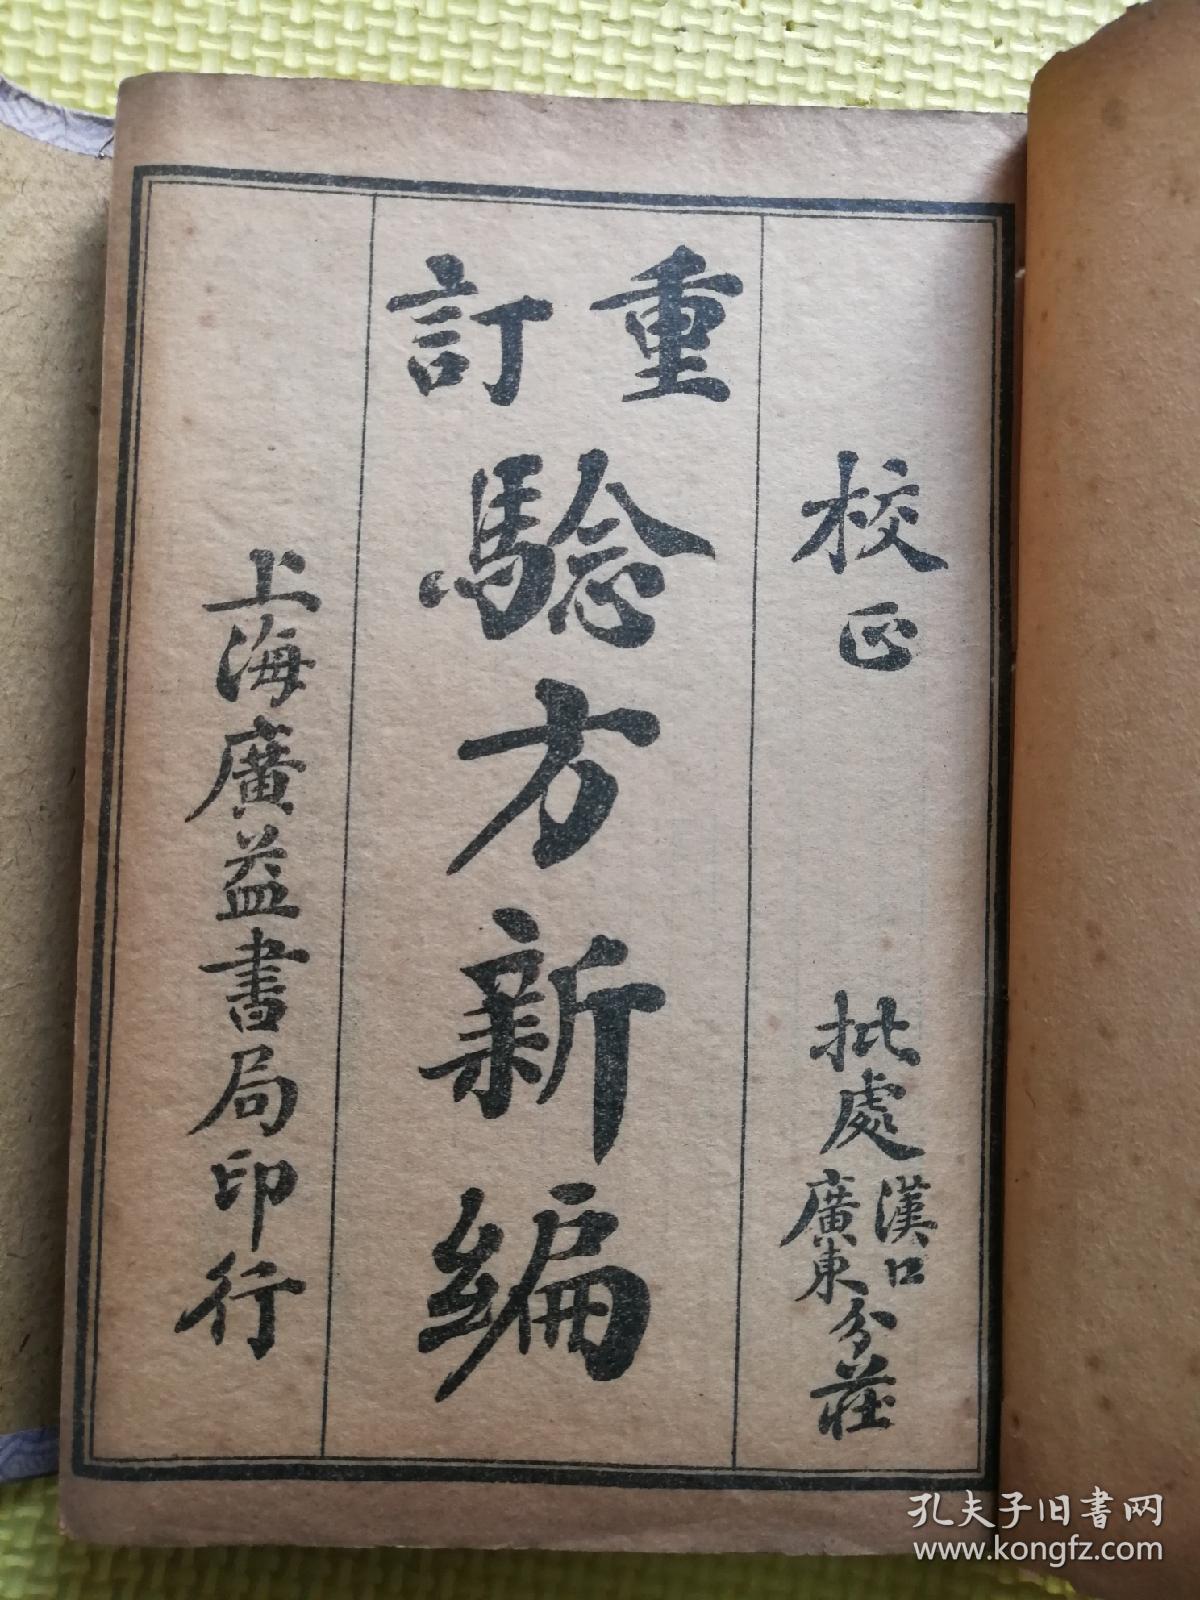 校正
批處漢口廣東分莊
重訂
騐方新編
上海廣益書局印行
孔夫子旧书网
www.kongfz.com